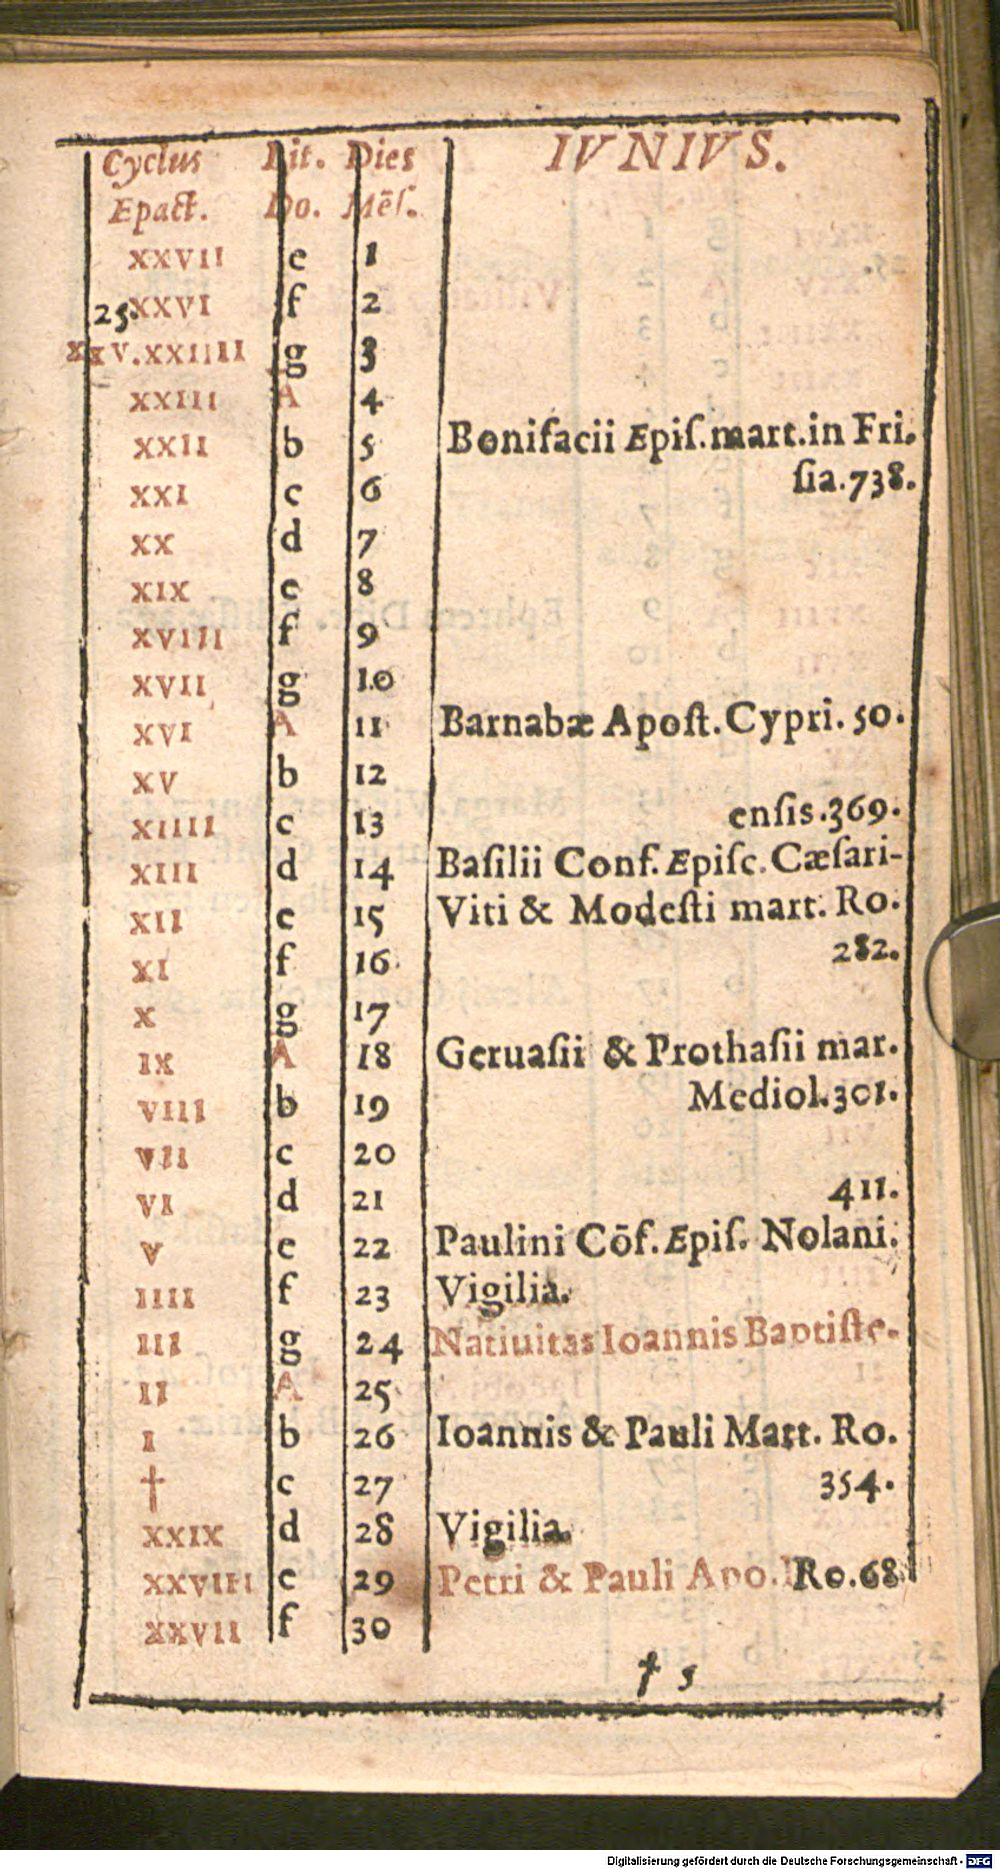 Cyclus Lit. Dies IVNIVS.
Epact. Do. Mēſ.
XXVII e 1
25.XXVI f 2
XXV.XXIIII g 3
XXIII A 4
XXII b 5 Bonifacii Epiſ.mart.in Fri.
XXI c 6 ſia.738.
XX d 7
XIX e 8
XVIII f 9
XVII g 10
XVI A 11 Barnabæ Apoſt.Cypri. 50.
XV b 12
XIIII c 13 enſis.369.
XIII d 14 Baſilii Conf.Epiſc.Cæſari-
XII e 15 Viti & Modeſti mart. Ro.
XI f 16 282.
X g 17
IX A 18 Geruaſii & Prothaſii mar.
VIII b 19 Mediol.301.
VII c 20
VI d 21 411.
V e 22 Paulini Cōf.Epiſ. Nolani.
IIII f 23 Vigilia.
III g 24 Natiuitas Ioannis Baptiſte.
II A 25
I b 26 Ioannis & Pauli Mart. Ro.
† c 27 354.
XXIX d 28 Vigilia.
XXVIII e 29 Petri & Pauli Apo. Ro.68
XXVII f 30
† 5
Digitalisierung gefördert durch die Deutsche Forschungsgemeinschaft - DFG